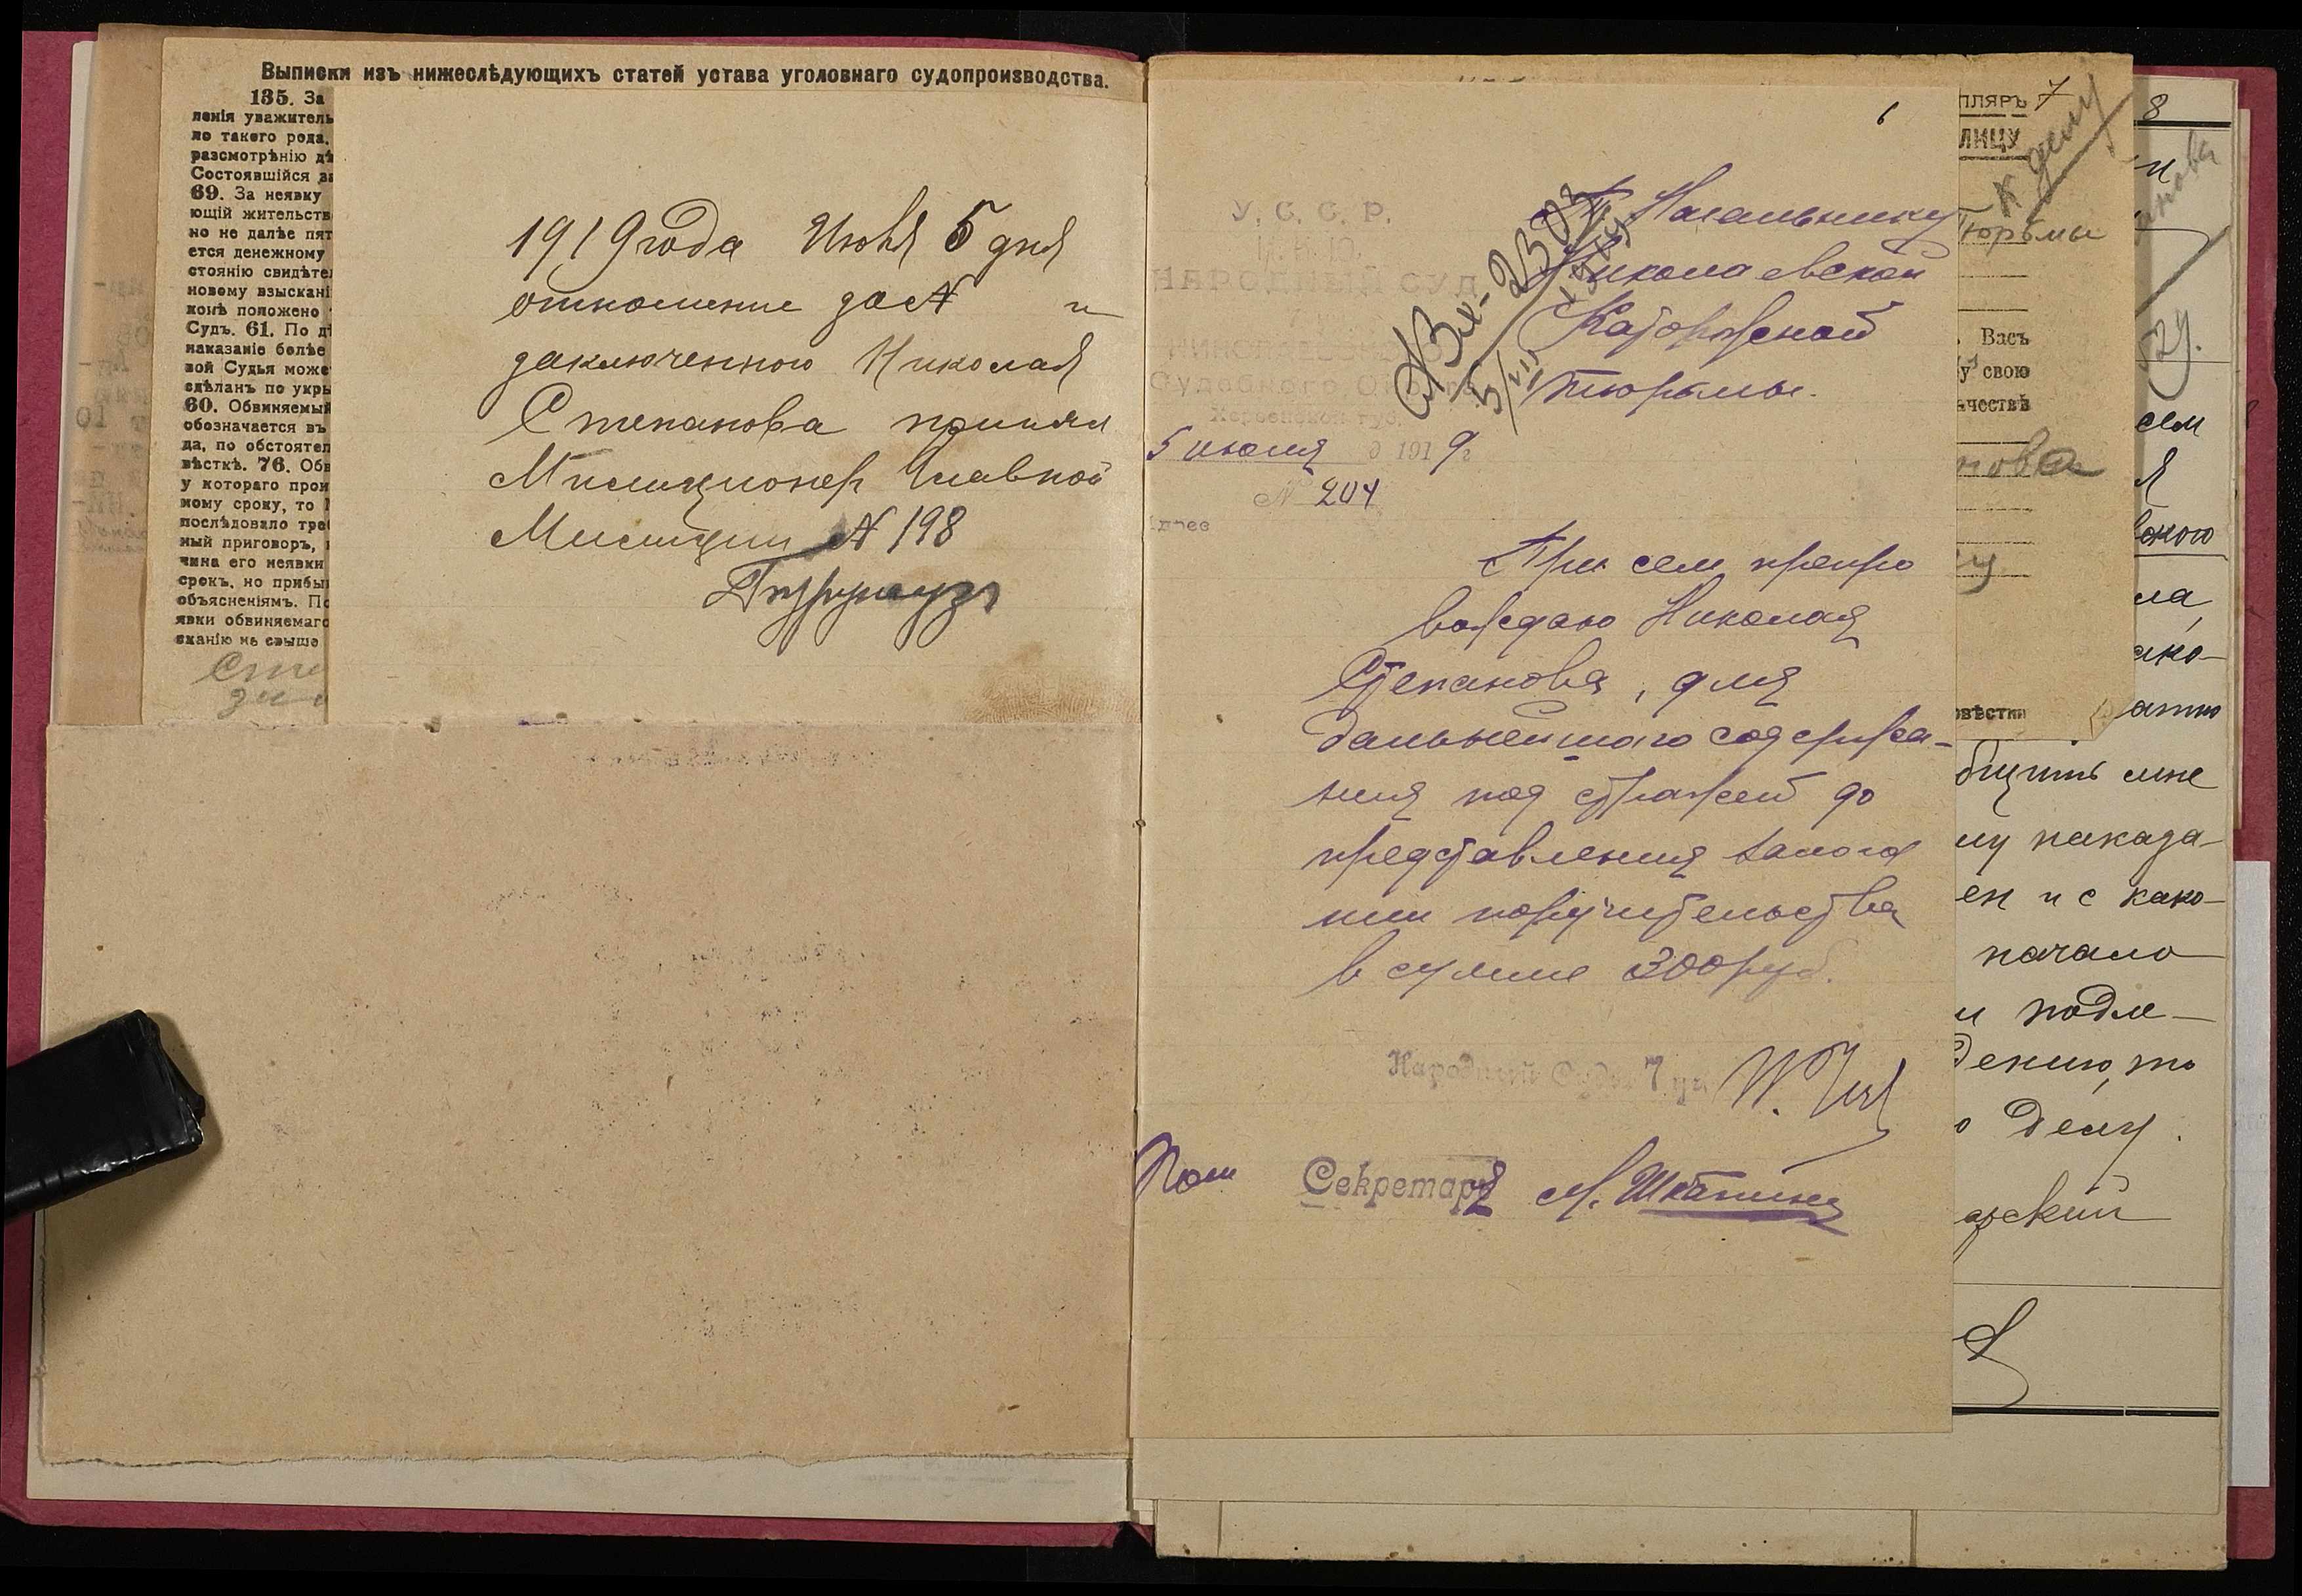 Выписки изъ нижеслѣдующихъ статей устава уголовнаго судопроизводства.
135. За
ленія уважитель
ло такого рода.
разсмотрѣнію дѣ
Состоявшійся за
69. За неявку
ющій жительств
но не далѣе пят
ется денежному
стоянію свидѣте
новому взыскані
конѣ положено
Судъ. 61. По дѣ
наказаніе болѣе
вой Судья може
сдѣланъ по укры
60. Обвиняемый
обозначается въ
да, по обстоятел
вѣсткѣ. 76. Обв
у котораго прои
мому сроку, то
послѣдовало тре
ный приговоръ,
чина его неявки
срокъ, но прибы
объясненіямъ. По
явки обвиняемаго
сканію не свыше
1919 года Июля 5 дня
отношение за № и
заключенного Николая
Степанова принял
Милиционер Главной
Милиции № 198
6
У. С. С. Р.
Н. К. Ю.
НАРОДНЫЙ СУД
Судебного Округа
Херсонской губ.
5 июля 1919 г.
№ 204
Адрес
Вх. 2302
5/VII
Начальнику
Николаевской
Каторжской
тюрьмы.
При сем препро
вождаю Николая
Степанова, для
дальнейшаго содержа-
ния под стражей до
представления залога
или поручительства
в сумме 300 руб.
Народный Судья 7 уч.
Пом Секретаря
ПЛЯРЪ 7
ЛИЦУ
К делу
Тюрьмы
Васъ
у свою
ачествѣ
нова
овѣстки
8
сем
я
ла,
ако-
бщить мне
му наказа-
ен и с како-
начало
и подле-
дению, то
о делу.